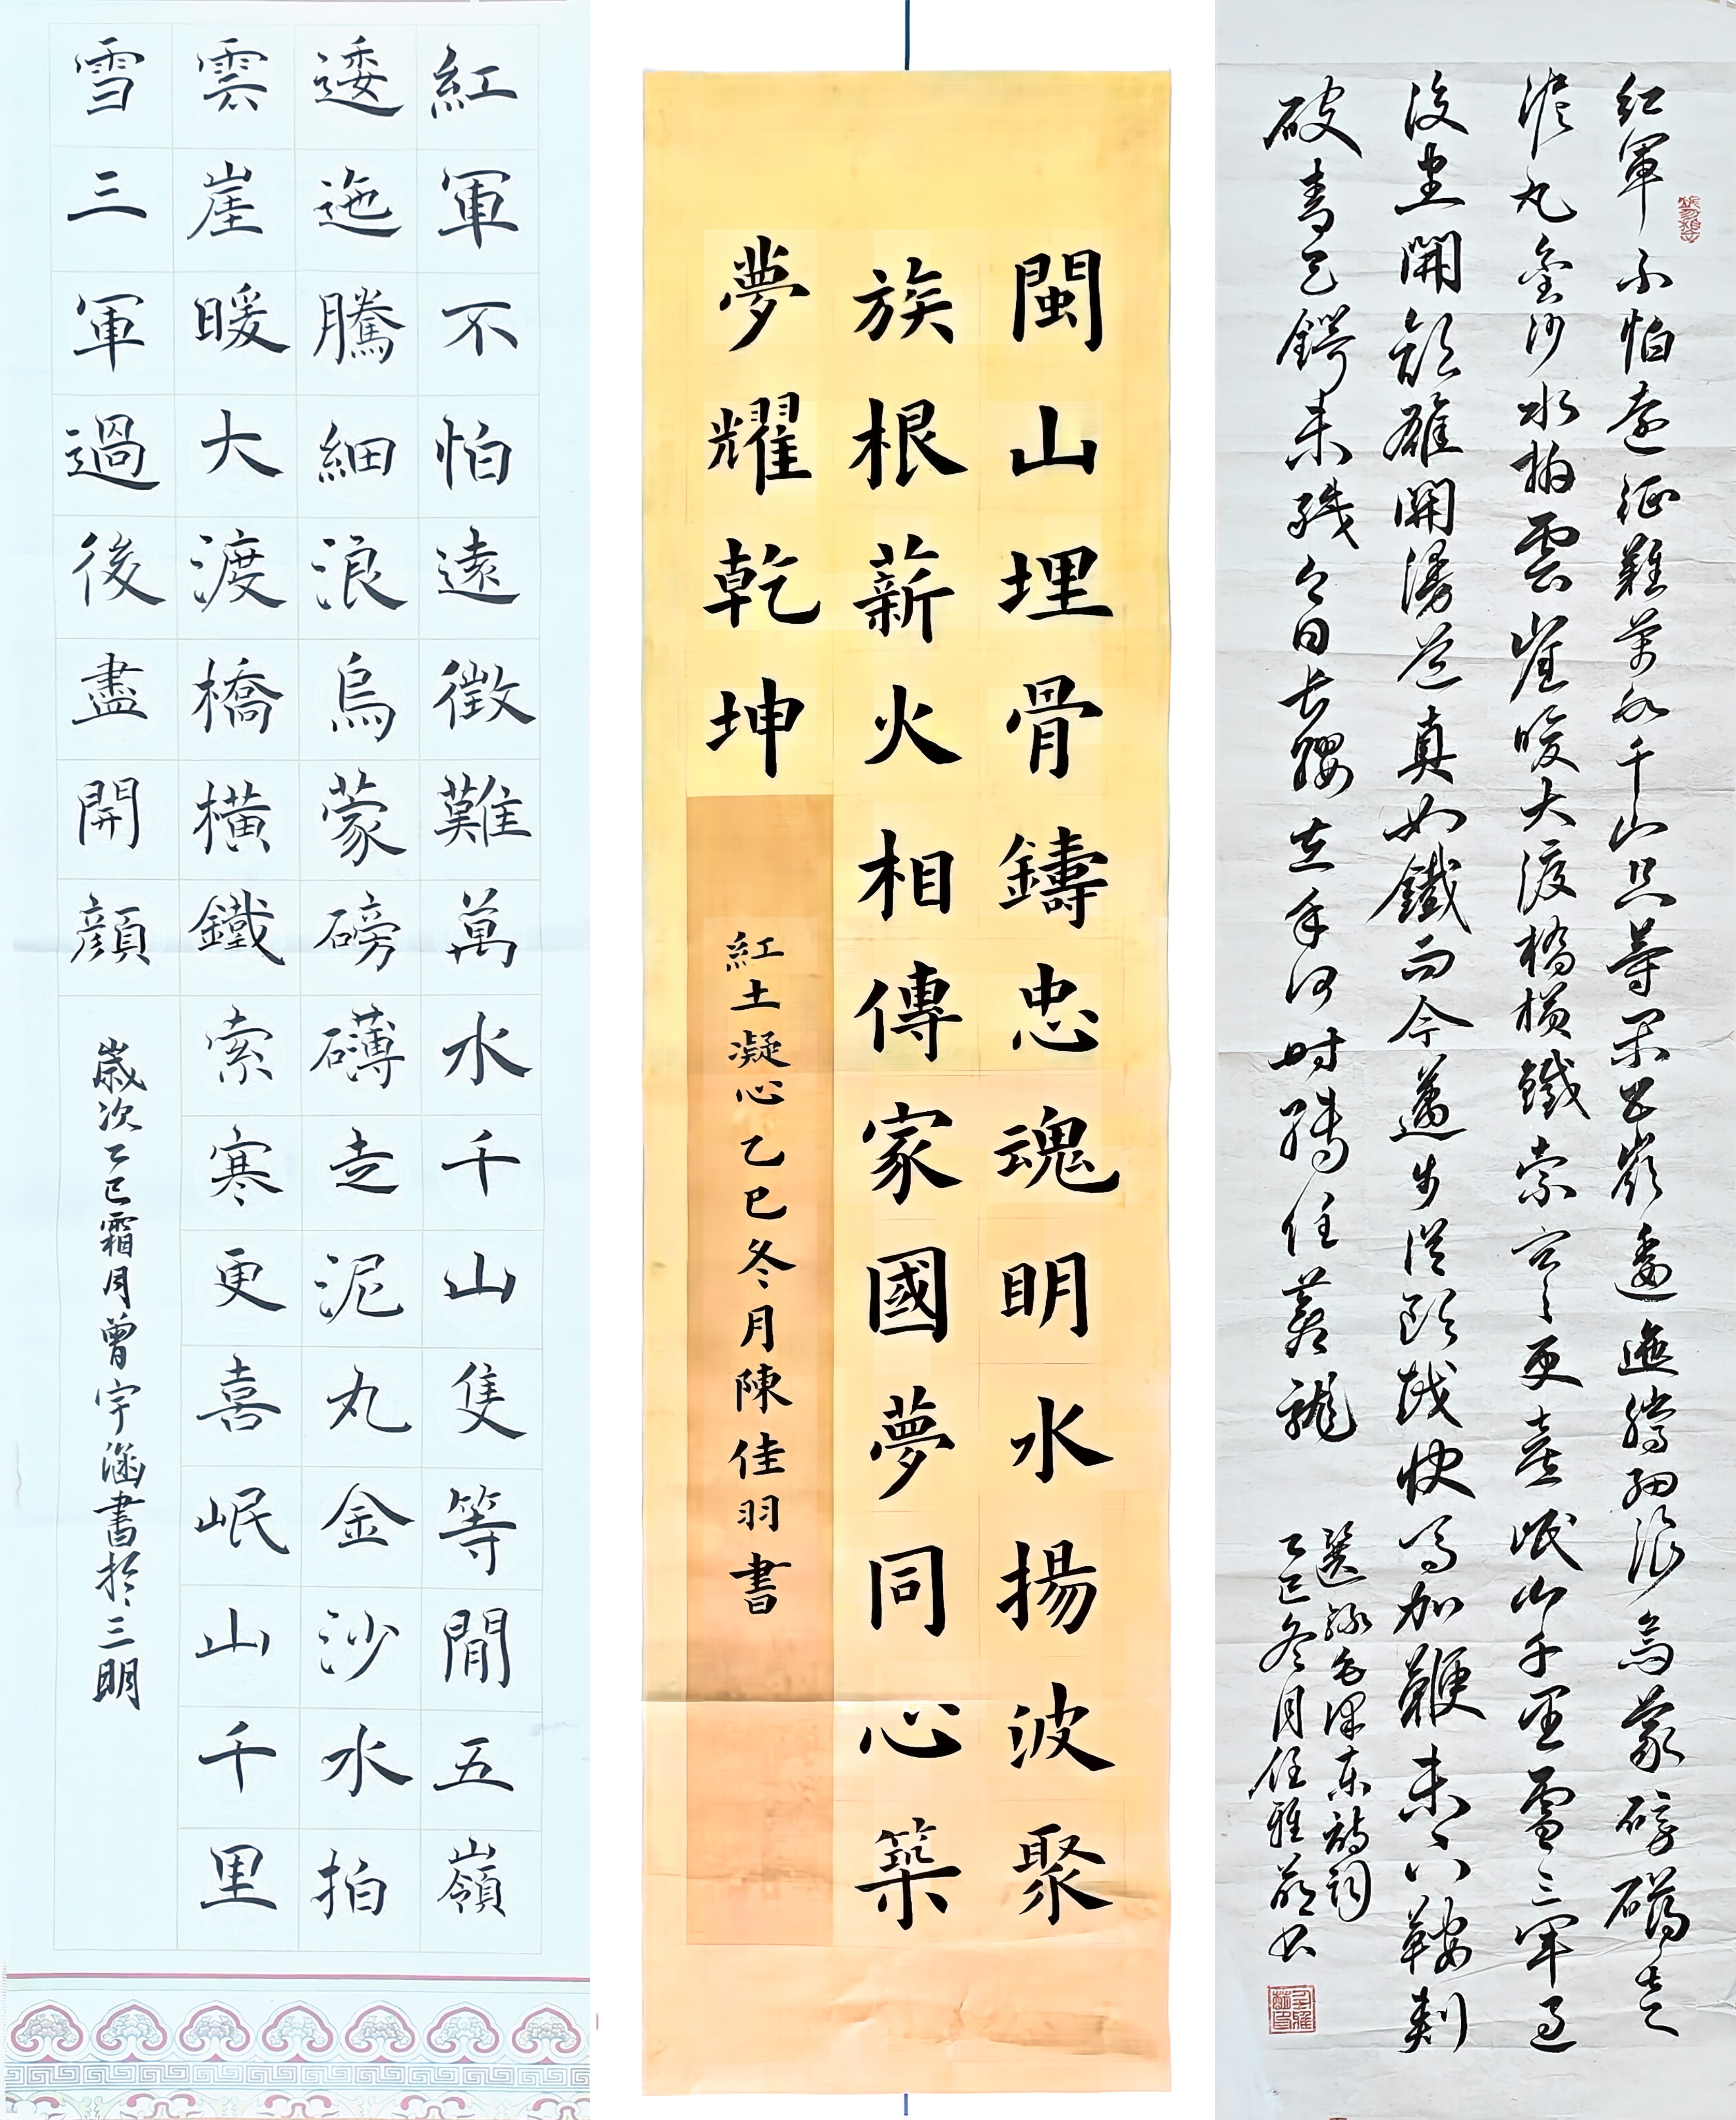 紅軍不怕遠徵難萬水千山隻等閒五嶺
逶迤騰細浪烏蒙磅礴走泥丸金沙水拍
雲崖暖大渡橋橫鐵索寒更喜岷山千里
雪三軍過後盡開顔
歲次乙巳霜月曾宇涵書於三明
閩山埋骨鑄忠魂明水揚波聚
族根薪火相傳家國夢同心築
夢耀乾坤
紅土凝心 乙巳冬月陳佳羽書
紅軍不怕遠征難萬水千山只等閑五嶺逶迤騰細浪烏蒙磅礴走
泥丸金沙水拍雲崖暖大渡橋橫鐵索寒更喜岷山千里雪三軍過
後盡開顏雄關漫道真如鐵而今邁步從頭越快馬加鞭未下鞍刺
破青天鍔未殘今日長纓在手何時縛住蒼龍
選錄毛澤東詩詞
乙巳冬月任雅書